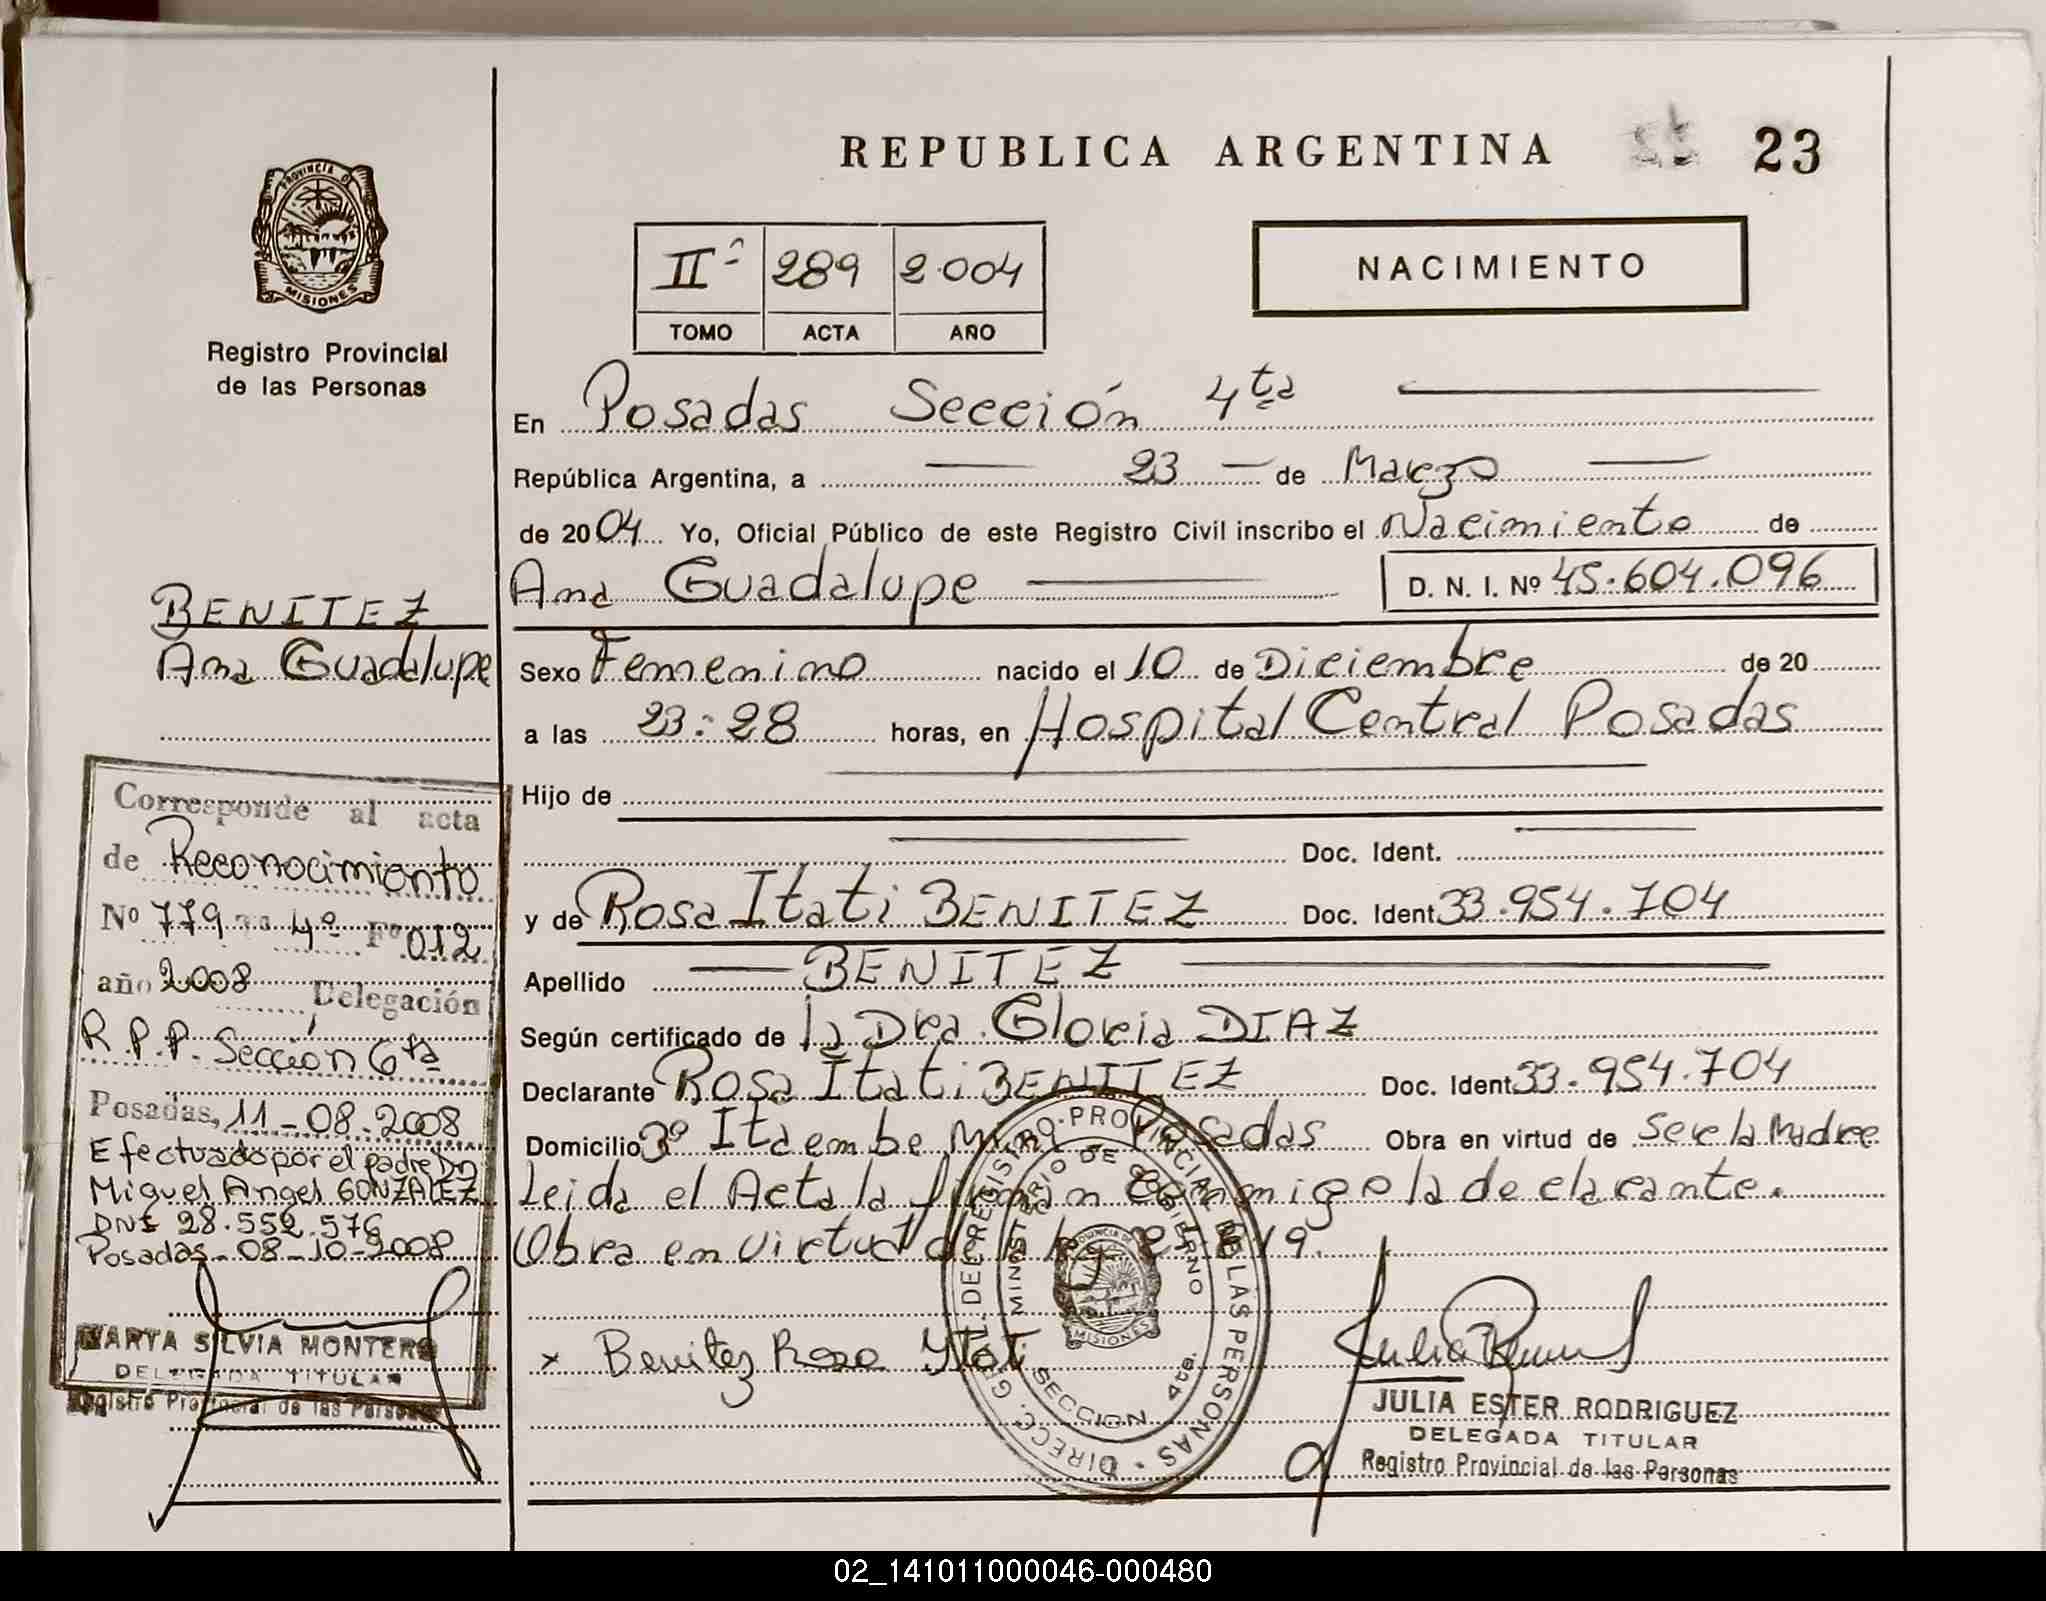 REPUBLICA ARGENTINA 23
PROVINCIA D
MISIONES
Registro Provincial
de las Personas
IIº 289 2.004
TOMO ACTA AÑO
NACIMIENTO
En Posadas Sección 4ta
República Argentina, a 23 de Marzo
de 2004 Yo, Oficial Público de este Registro Civil inscribo el Nacimiento de
Ana Guadalupe D. N. I. Nº 45.604.096
Sexo Femenino nacido el 10 de Diciembre de 20
a las 23:28 horas, en Hospital Central Posadas
Hijo de
Doc. Ident.
y de Rosa Itati BENITEZ Doc. Ident 33.954.704
Apellido BENITEZ
Según certificado de la Dra. Gloria DIAZ
Declarante Rosa Itati BENITEZ Doc. Ident 33.954.704
Domicilio 3º Itaembe Mini Posadas Obra en virtud de Ser la Madre
Leida el Acta la firman conmigo la declarante.
Obra en virtud de la ley
x Benitez Rosa Ytati
JULIA ESTER RODRIGUEZ
DELEGADA TITULAR
Registro Provincial de las Personas
DIRECC. GRAL. DEL REGISTRO PROVINCIAL DE LAS PERSONAS
MINISTERIO DE GOBIERNO
MISIONES
SECCION 4ta.
BENITEZ
Ana Guadalupe
Corresponde al acta
de Reconocimiento
Nº 779 4º Fº 012
año 2008 Delegación
R.P.P. Sección 6ta
Posadas, 11-08-2008
Efectuado por el padre Dn
Miguel Angel GONZALEZ
DNI 28.552.576
Posadas 08-10-2008
MARTA SILVIA MONTERO
DELEGADA TITULAR
Registro Provincial de las Personas
02_141011000046-000480